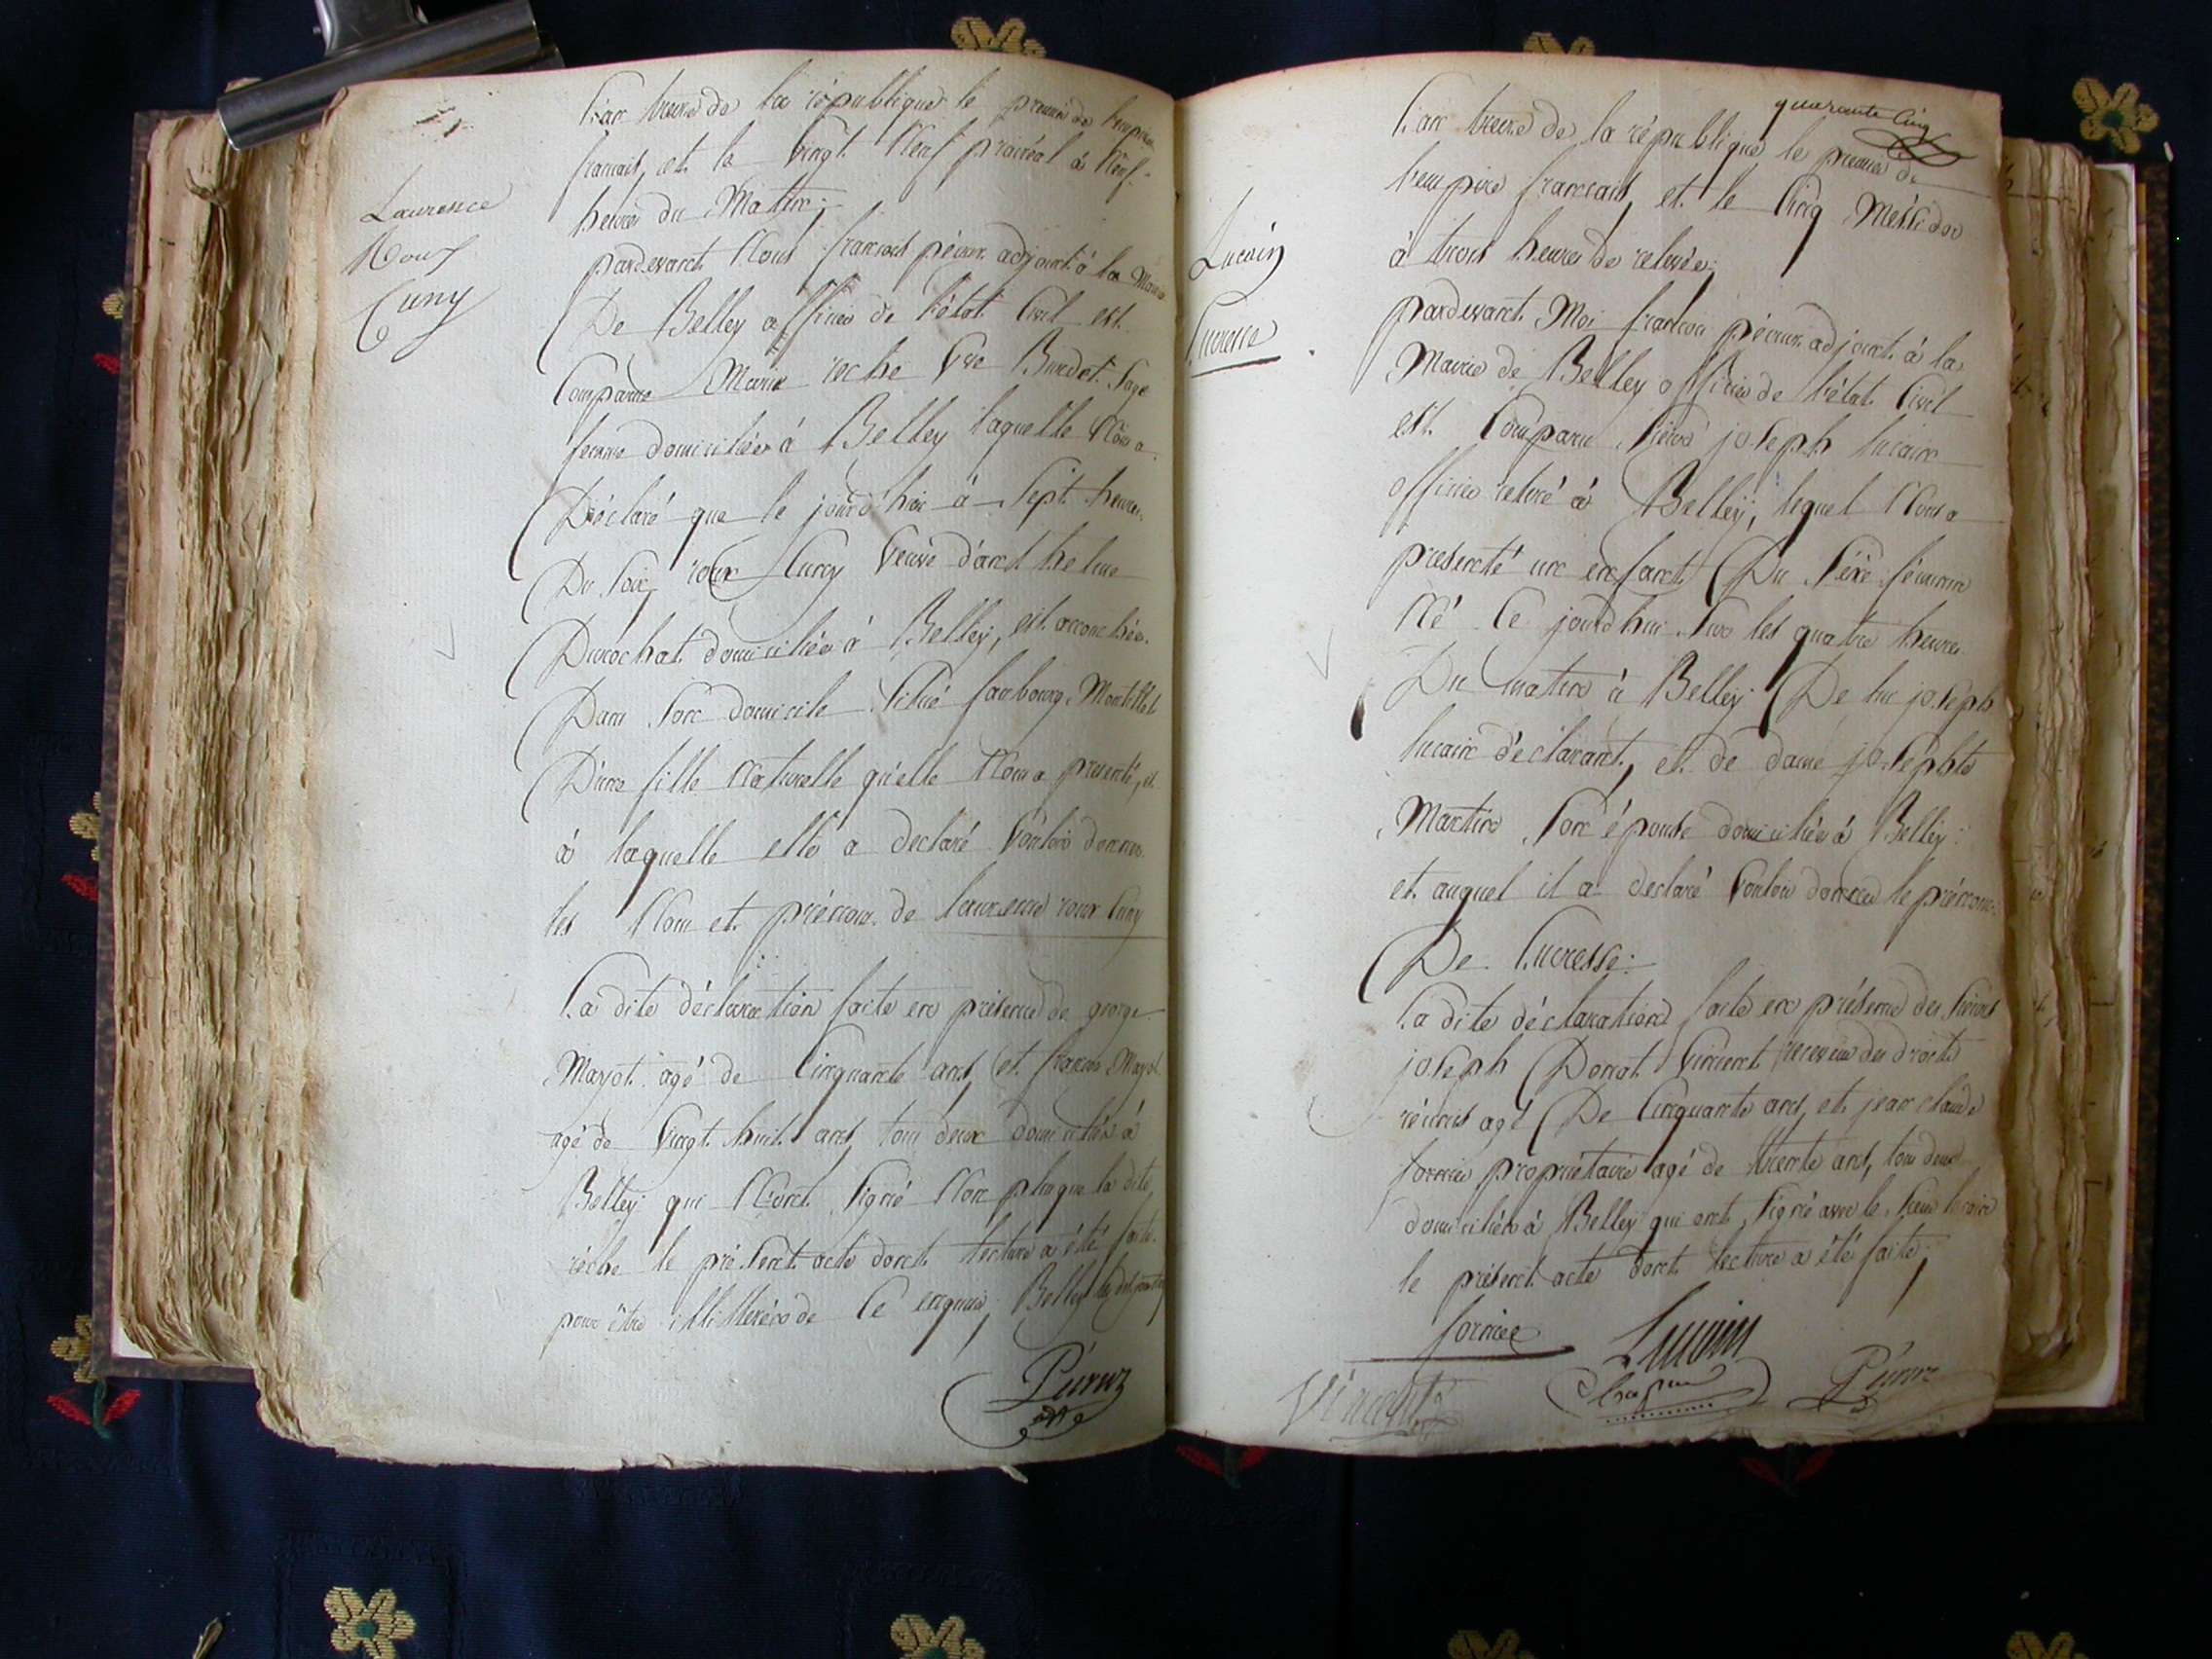 Laurence
Roux
Cuny
L'an treize de la république le premier de l'empire
français, et le vingt Neuf prairéal à Neuf
heures du Matin;
pardevant Nous françois péruz adjoint à la Mairie
De Belley officier de l'état Civil est
Comparue Marie roche Vve Burdet Sage
femme domiciliée à Belley laquelle Nous a
Déclaré que le jourd'hier à Sept heures
Du Soir, roux Cuny Veuve d'anthelme
Durochat domiciliée à Belley, est accouchée
Dans Son domicile Situé faubourg
D'une fille Naturelle qu'elle Nous a présenté, et
à laquelle elle a declaré Vouloir donner
les Nom et prénom de laurence roux Cuny
La dite déclaration faite en présence de george
Mayot agé de Cinquante ans, et françois Mayot
agé de Vingt huit ans, tous deux domiciliés à
Belley qui N'ont Signé Non plus que la dite
roche le présent acte dont lecture a été faite
pour être illitterés de Ce enquis, Belley les dits jour
Péruz
quarante Cinq
Lucain
Lucresse
L'an treize de la république le premier de
l'empire français, et le Cinq Méssidor
à trois heures de relevée;
pardevant Moi françois péruz adjoint à la
Mairie de Belley officier de l'état Civil
est Comparu Sieur joseph lucain
officier retiré à Belley, lequel Nous a
présenté un enfant Du Séxe féminin
Né Ce jourd'hui Sur les quatre heures
Du matin à Belley De lui joseph
lucain déclarant, et de dame joséphte
Martin Son épouse domiciliée à Belley
et auquel il a declaré Vouloir donner le prénom
De Lucresse
La dite déclaration faite en présence des Sieurs
joseph Donat Vincent receveur des droits
réunis agé De Cinquante ans, et jean claude
fornier propriétaire agé de trente ans, tous deux
domiciliés à Belley qui ont Signé avec le Sieur lucain
le présent acte dont lecture a été faite;
fornier
Lucain
Vincent
Péruz